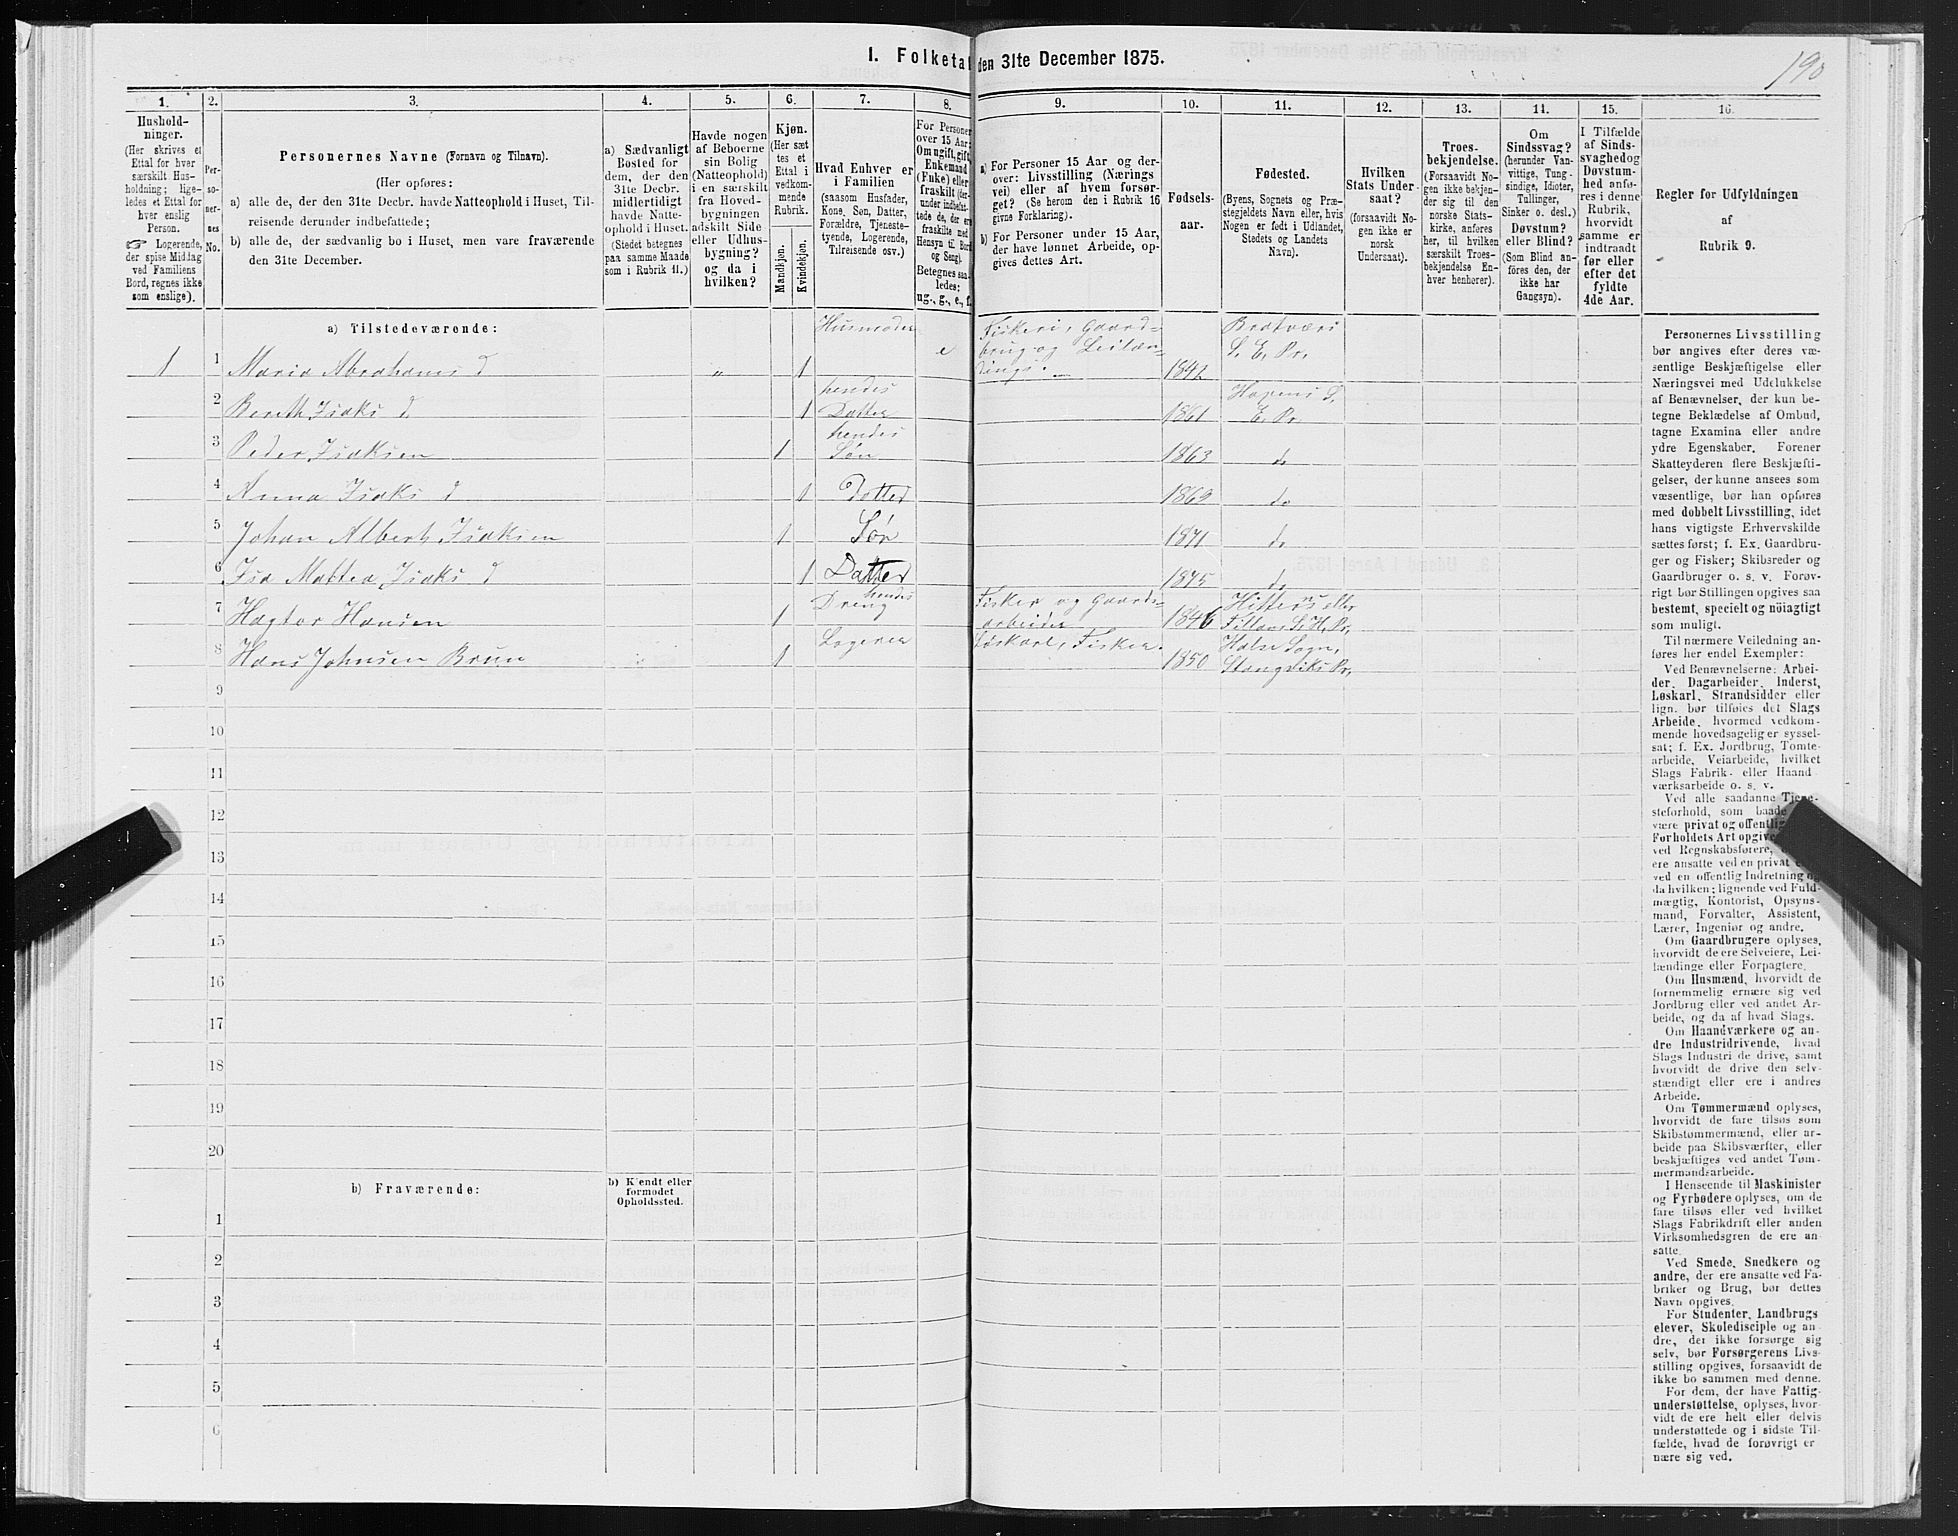 190
I. Folketal den 31te December 1875.
1. 2. 3. 4. 5. 6. 7. 8. 9. 10. 11. 12. 13. 14. 15. 16.
Hushold-
ninger.
(Her skrives et
Ettal for hver
særskilt Hus-
holdning; lige-
ledes et Ettal for
hver enslig
Person.
☞ Logerende,
der spise Middag
ved Familiens
Bord, regnes ikke
som enslige).
Per-
so-
ner-
nes
No.
Personernes Navne (Fornavn og Tilnavn).
(Her opføres:
a) alle de, der den 31te Decbr. havde Natteophold i Huset, Til-
reisende derunder indbefattede;
b) alle de, der sædvanlig bo i Huset, men vare fraværende
den 31te December.
a) Sædvanligt
Bosted for
dem, der den
31te Decbr.
midlertidigt
havde Natte-
ophold i Huset.
(Stedet betegnes
paa samme Maade
som i Rubrik 11.)
Havde nogen
af Beboerne
sin Bolig
(Natteophold)
i en særskilt
fra Hoved-
bygningen
adskilt Side
eller Udhus-
bygning?
og da i
hvilken?
Kjøn.
(Her sæt
tes et
Ettal i
vedkom-
mende
Rubrik.
Mandkjøn.
Kvindekjøn.
Hvad Enhver er
i Familien
(saasom Husfader,
Kone, Søn, Datter,
Forældre, Tjeneste-
tyende, Logerende,
Tilreisende osv.)
For Personer
over 15 Aar:
Om ugift, gift,
Enkemand
(Enke) eller
fraskilt (der-
under indbefat-
tede de, der ere
fraskilte med
Hensyn til Bord
og Seng).
Betegnes saa-
ledes:
ug., g., e., f.
a) For Personer 15 Aar og der-
over: Livsstilling (Nærings
vei) eller af hvem forsør-
get? (Se herom den i Rubrik 16
givne Forklaring).
b) For Personer under 15 Aar,
der have lønnet Arbeide, op-
gives dettes Art.
Fødsels-
aar.
Fødested.
(Byens, Sognets og Præ-
stegjeldets Navn eller, hvis
Nogen er født i Udlandet,
Stedets og Landets
Navn).
Hvilken
Stats Under-
saat?
(forsaavidt No-
gen ikke er
norsk
Undersaat).
Troes-
bekjendelse.
(Forsaavidt No-
gen ikke bekjen-
der sig til den
norske Stats-
kirke, anføres
her, til hvilken
særskilt Troes-
bekjendelse En-
hver henhører).
Om
Sindssvag?
(herunder Van-
vittige, Tung-
sindige, Idioter,
Tullinger,
Sinker o. desl.)
Døvstum?
eller Blind?
(Som Blind an-
føres den, der
ikke har
Gangsyn).
I Tilfælde
af Sinds-
svaghed og
Døvstum-
hed anfø-
res i denne
Rubrik,
hvorvidt
samme er
indtraadt
før eller
efter det
fyldte
4de Aar.
Regler for Udfyldningen
af
Rubrik 9.
a) Tilstedeværende:
1 1 Maria Abrahams d „ 1 Husmoder e Fiskeri, Gaard-
brug og Leilæn-
dings. 1842 Bratværs
S. E. Pr.
2 Bereth Isaks d 1 hendes
Datter 1861 Hopens S.
E. Pr.
3 Peder Isaksen 1 hendes
Søn 1863 do
4 Anna Isaks d 1 Datter 1869 do
5 Johan Albert Isaksen 1 Søn 1871 do
6 Isa Mattea Isaks d 1 Datter 1875 do
7 Hagtor Hansen 1 hendes
Dreng Fisker og Gaards-
arbeider 1846 Hitterns eller
Fillans S. H. Pr.
8 Hans Johnsen Brun 1 Logerer Løskarl, Fisker. 1850 Halse Sogn,
Stangviks Pr.
9
10
11
12
13
14
15
16
17
18
19
20
b) Fraværende:
b) Kjendt eller
formodet
Opholdssted.
1
2
3
4
5
6
Personernes Livsstilling
bør angives efter deres væ-
sentlige Beskjæftigelse eller
Næringsvei med Udelukkelse
af Benævnelser, der kun be-
tegne Beklædelse af Ombud,
tagne Examina eller andre
ydre Egenskaber. Forener
Skatteyderen flere Beskjæfti-
gelser, der kunne ansees som
væsentlige, bør han opføres
med dobbelt Livsstilling, idet
hans vigtigste Erhvervskilde
sættes først; f. Ex. Gaardbru-
ger og Fisker; Skibsreder og
Gaardbruger o. s. v. Forøv-
rigt bør Stillingen opgives saa
bestemt, specielt og nøiagtigt
som muligt.
Til nærmere Veiledning an-
føres her endel Exempler:
Ved Benævnelserne: Arbei-
der, Dagarbeider, Inderst,
Løskarl, Strandsidder eller
lign. bør tilføies det Slags
Arbeide, hvormed vedkom-
mende hovedsagelig er syssel-
sat; f. Ex. Jordbrug, Tomte-
arbeide, Veiarbeide, hvilket
Slags Fabrik- eller Haand-
værksarbeide o. s. v.
Ved alle saadanne Tjene-
steforhold, som baade
være privat og offentlig
Forholdets Art opgives
ved Regnskabsførere,
ere ansatte ved en privat
ved en offentlig Indretning og
da hvilken; lignende ved Fuld-
mægtig, Kontorist, Opsyns-
mand, Forvalter, Assistent,
Lærer, Ingeniør og andre.
Om Gaardbrugere oplyses,
hvorvidt de ere Selveiere, Lei-
lændinge eller Forpagtere.
Om Husmænd, hvorvidt de
fornemmelig ernære sig ved
Jordbrug eller ved andet Ar-
beide, og da af hvad Slags.
Om Haandværkere og an-
dre Industridrivende, hvad
Slags Industri de drive, samt
hvorvidt de drive den selv-
stændigt eller ere i andres
Arbeide.
Om Tømmermænd oplyses,
hvorvidt de fare tilsøs som
Skibstømmermænd, eller ar-
beide paa Skibsværfter, eller
beskjæftiges ved andet Tøm-
mermandsarbeide.
I Henseende til Maskinister
og Fyrbødere oplyses, om de
fare tilsøs eller ved hvilket
Slags Fabrikdrift eller anden
Virksomhedsgren de ere an-
satte.
Ved Smede, Snedkere og
andre, der ere ansatte ved Fa-
briker og Brug, bør dettes
Navn opgives.
For Studenter, Landbrugs
elever, Skoledisciple og an-
dre, der ikke forsørge sig
selv, bør Forsørgerens Livs-
stilling opgives, forsaavidt de
ikke bo sammen med denne.
For dem, der have Fattig-
understøttelse, oplyses, hvor-
vidt de ere helt eller delvis
understøttede og i sidste Til-
fælde, hvad de forøvrigt er
nære sig ved.